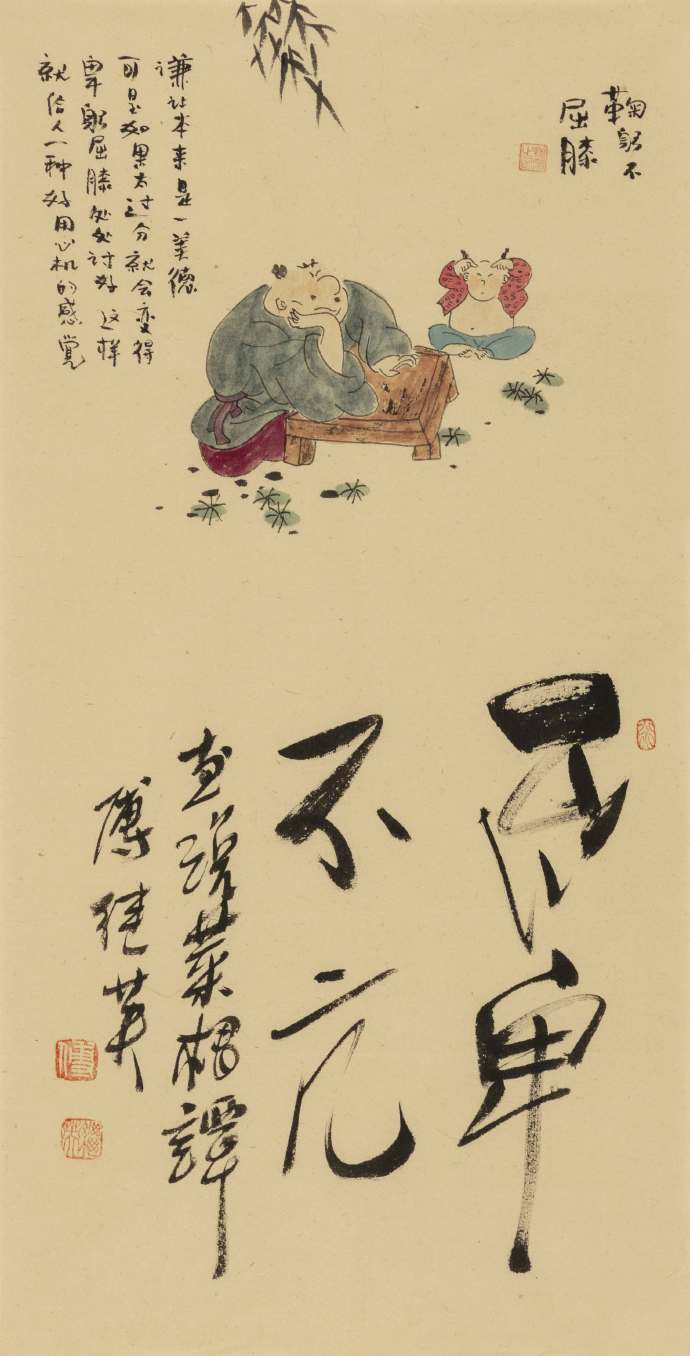 鞠躬不
屈膝
谦让本来是一美德
可是如果太过分就会变得
卑躬屈膝处处讨好 这样
就给人一种好用心机的感觉
不卑
不亢
画说菜根譚
傅继英